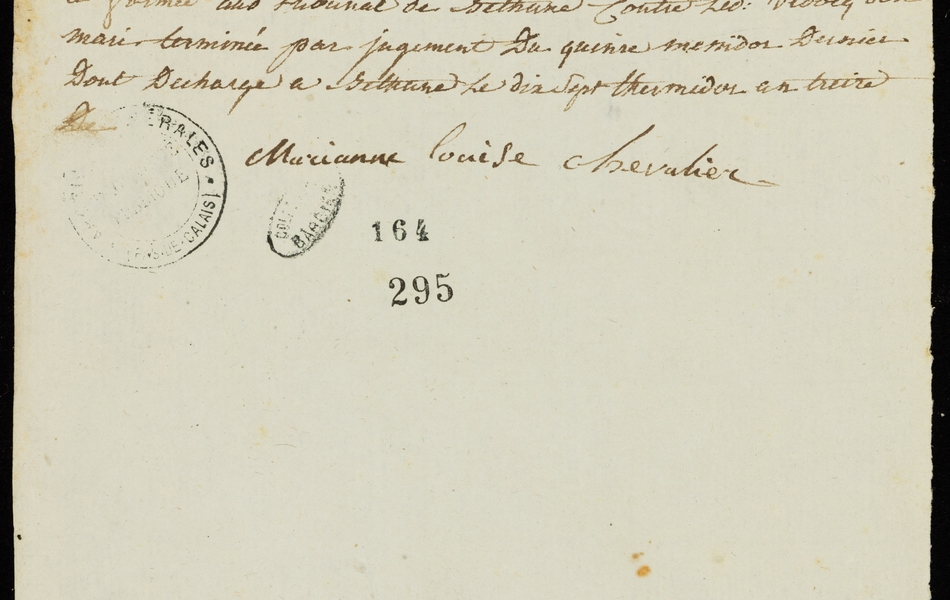 formée aud tribunal de Béthune Contre led: vidocq son
mari terminée par jugement Du quinze messidor Dernier
Dont Decharge a Béthune Le dix sept thermidor an treize
De
Marianne Louise Chevalier
ERALES
PAS-DE-CALAIS)
COLL
BARC
164
295